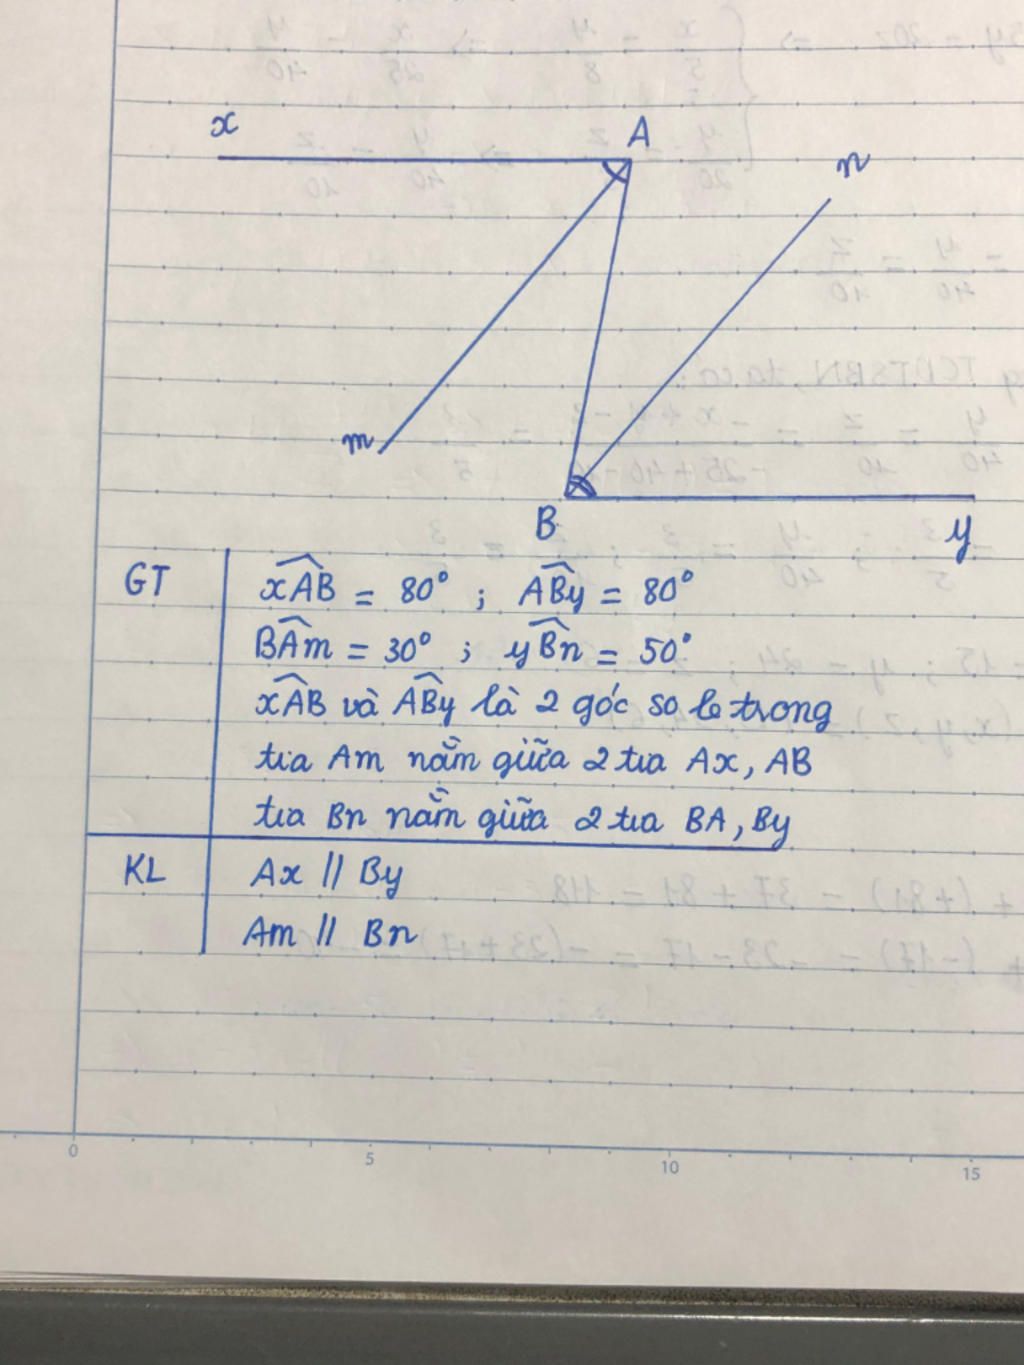 x
A
n
m
B
y
GT
xAB = 80° ; ABy = 80°
BAm = 30° ; yBn = 50°
xAB và ABy là 2 góc so le trong
tia Am nằm giữa 2 tia Ax, AB
tia Bn nằm giữa 2 tia BA, By
KL
Ax // By
Am // Bn
0 5 10 15